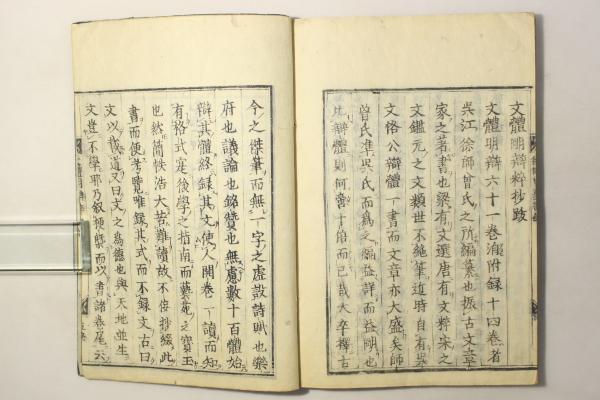 文體明辯粹抄跋
文體明辯六十一卷洎附録十四卷者
吳江徐師曾氏之所編纂也振古文章
家之著書也梁有文選唐有文粹宋之
文鑑元之文類世不絶筆近時自有吳
文恪公辯體一書而文章亦大盛矣師
曾氏準吳氏而爲之編益詳而益明也
辯體則何啻十倍而已哉大卒檡古
今之傑筆而無一字之虛設詩賦也樂
府也議論也銘贊也無慮數十百體始
辯其體終録其文使人開卷一讀而知
有格式寔後學之指南而藝苑之寶玉
也然簡帙浩大苦難讀故不佞抄纔此
書而便考覽唯録其式而不録文古曰
文以載道又曰文之爲德也與天地並生
文豈不學耶乃叙梗槩而以書諸卷尾云